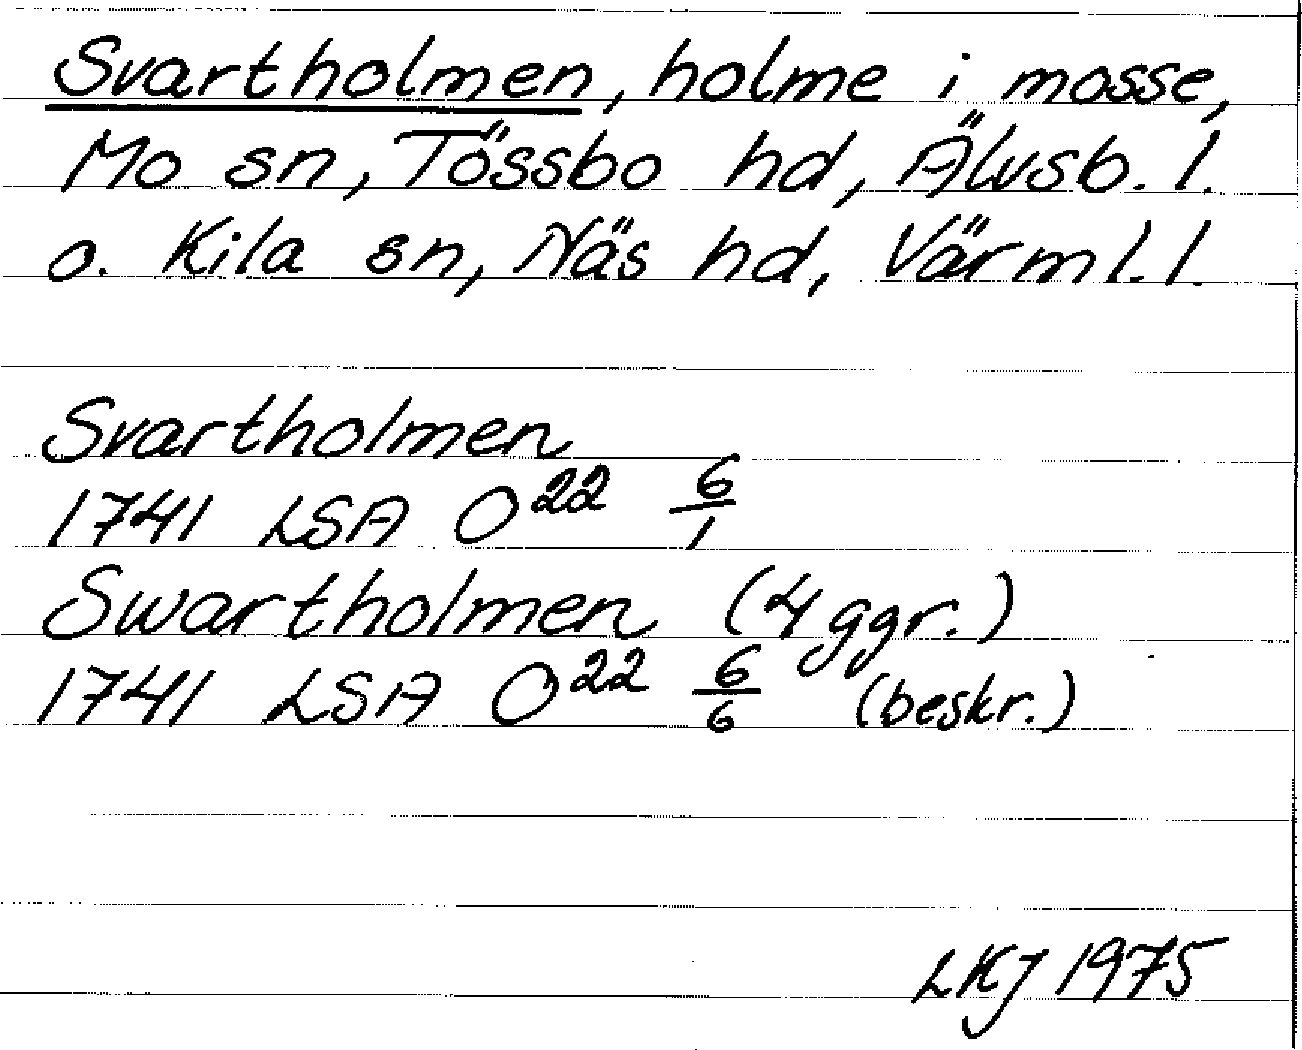 Svartholmen, holme i mosse,
Mo sn, Tössbo hd, Älvsb. l.
o. Kila sn, Näs hd, Värml. l.
Svartholmen
1741 LSA O²² 6/1
Swartholmen (4 ggr.)
1741 LSA O²² 6/6 (beskr.)
LKJ 1975